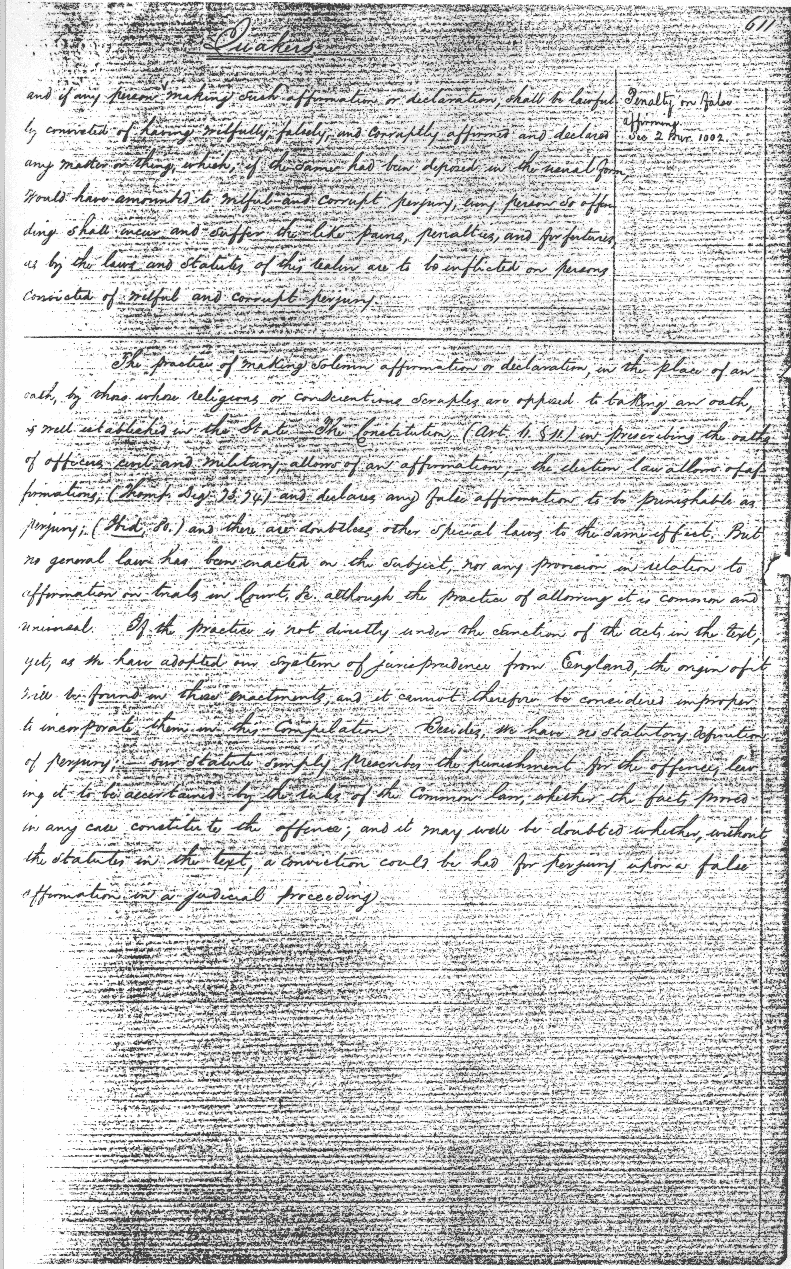 611
Quakers
and if any person making such affirmation or declaration, shall be lawful-
ly convicted of having wilfully, falsely, and corruptly affirmed and declared
any matter or thing, which, if the same had been deposed in the usual form,
would have amounted to wilful and corrupt perjury, every person so offen
ding shall incur and suffer the like pains, penalties, and forfeitures
as by the laws and statutes of this realm are to be inflicted on persons
convicted of wilful and corrupt perjury.
Penalty on false
affirming.
See 2 Burr. 1002.
The practice of making solemn affirmation or declaration, in the place of an
oath, by those whose religious or conscientious scruples are opposed to taking an oath,
is well established in the State. The Constitution, (Art. 6. § 11.) in prescribing the oaths
of officers civil and military, allows of an affirmation, – the election law allows of af-
firmations, (Thomp. Dig. 73, 74) and declares any false affirmation to be punishable as
perjury; (Ibid, 80.) and there are doubtless other special laws to the same effect. But
no general law has been enacted on the subject, nor any provision in relation to
affirmation on trials in Court, &c. although the practice of allowing it is common and
universal. If the practice is not directly under the sanction of the acts in the text,
yet, as we have adopted our system of jurisprudence from England, the origin of it
will be found in these enactments, and it cannot therefore be considered improper
to incorporate them in this Compilation. Besides, we have no statutory definition
of perjury, – our statute simply prescribes the punishment for the offense, leav
ing it to be ascertained by the rules of the Common law, whether the facts proved
in any case constitute the offence; and it may well be doubted whether, without
the statutes in the text, a conviction could be had for perjury upon a false
affirmation in a judicial proceeding